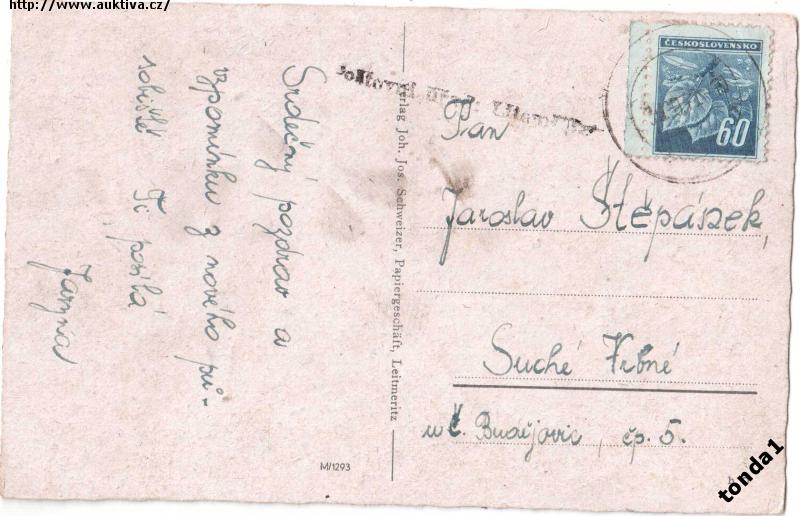 http://www.auktiva.cz/
Srdečný pozdrav a
vzpomínku z nového pů-
sobiště Ti posílá
Verlag Joh. Jos. Schweizer, Papiergeschäft, Leitmeritz
M/1293
ČESKOSLOVENSKO
60
Pan
Jaroslav Štěpánek,
Suché Vrbné
u Č. Budějovic, čp. 5.
tonda1